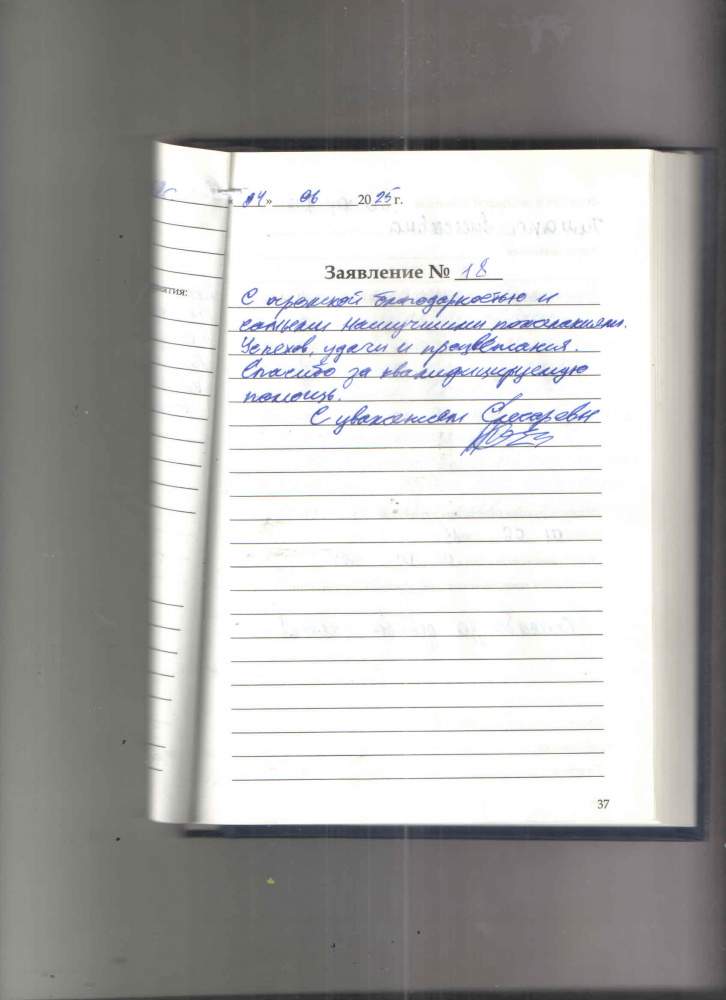 « 04 » 06 2025 г.
Заявление № 18
С огромной благодарностью и
самыми наилучшими пожеланиями.
Успехов, удачи и процветания.
Спасибо за квалифицируемую
помощь.
С уважением Слесаревы
37